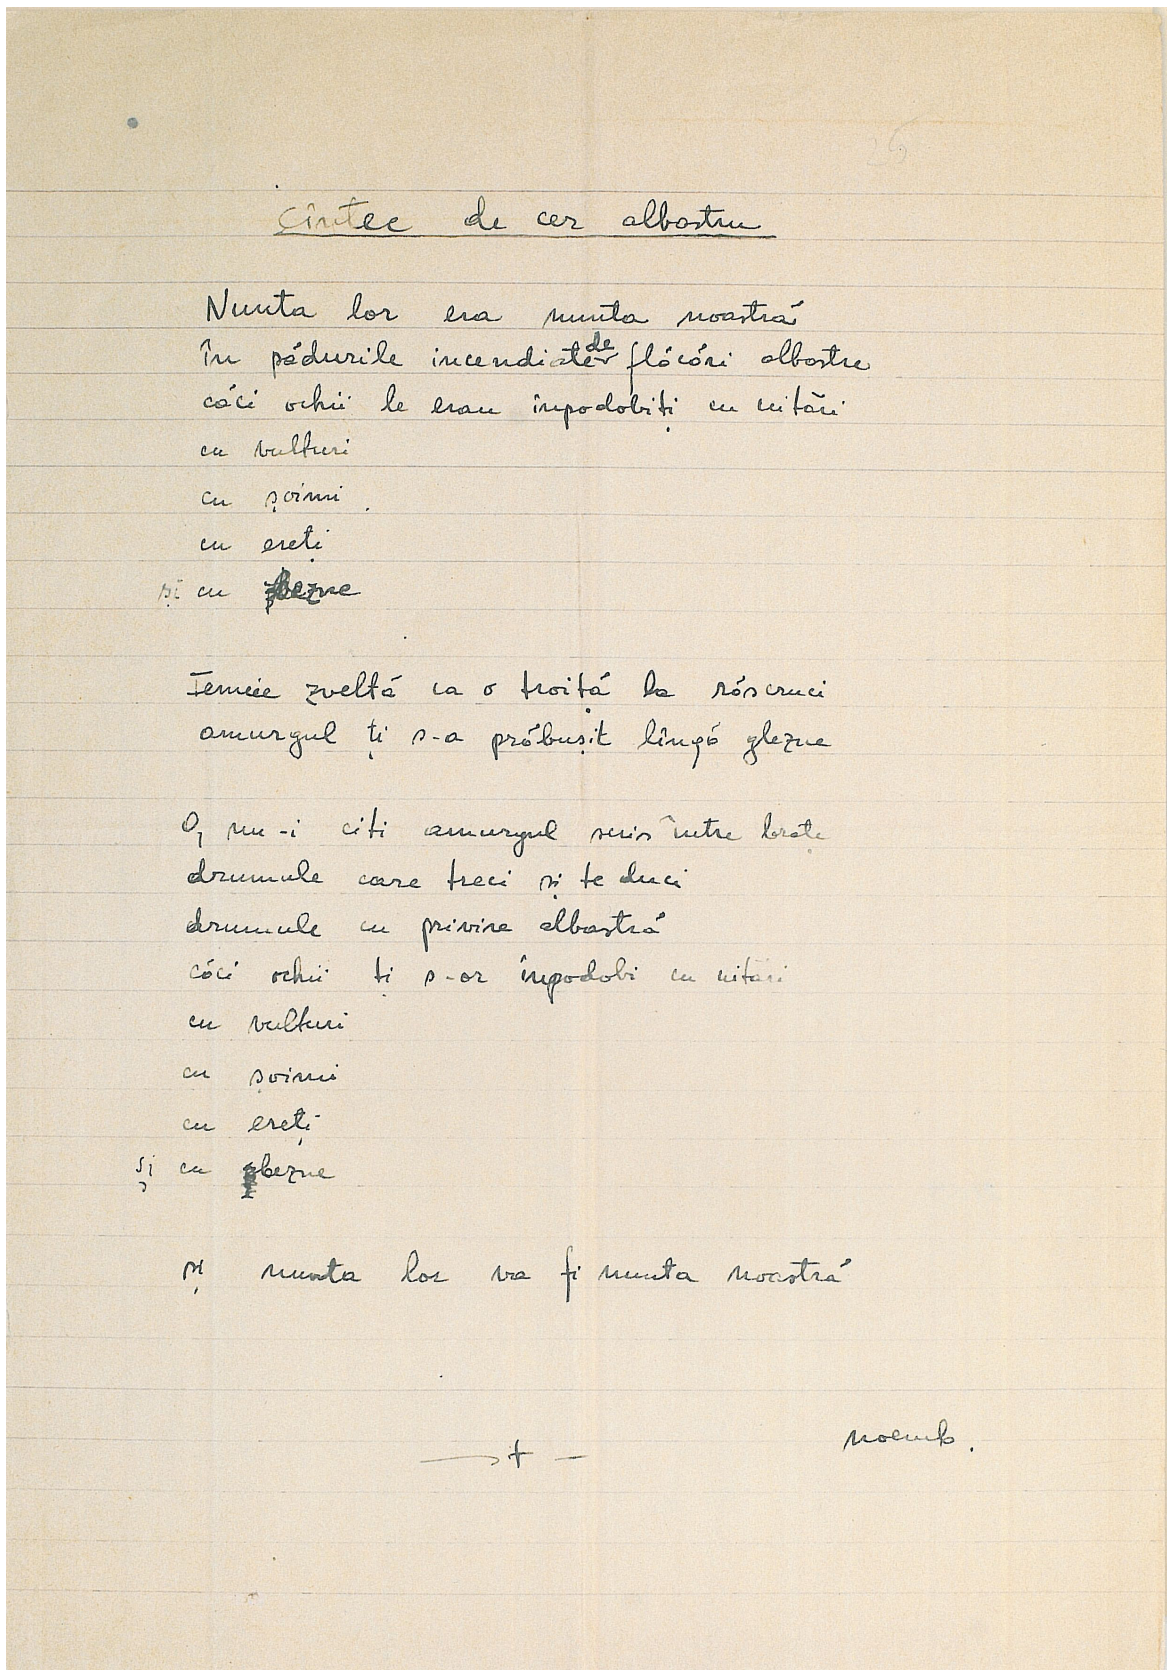 Cîntec de cer albastru
Nunta lor era nunta noastră
În pădurile incendiate de flăcări albastre
căci ochii le erau înpodobiți cu uitări
cu vulturi
cu șoimi
cu ereți
și cu bezne
Femeie zveltă ca o troiță la răscruci
amurgul ți s-a prăbușit lîngă glezne
O, nu-i citi amurgul scris între brațe
drumule care treci și te duci
drumule cu privire albastră
căci ochii ți s-or înpodobi cu uitări
cu vulturi
cu șoimi
cu ereți
și cu bezne
și nunta lor va fi nunta noastră
noemb.